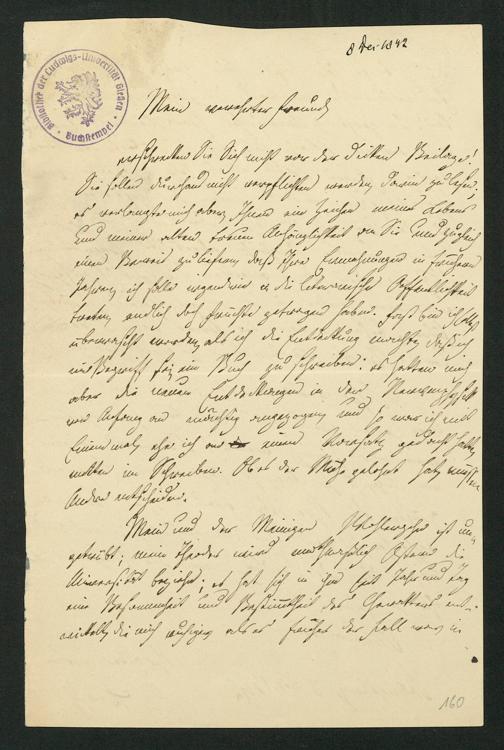 8 Dez 1892
Bibliothek der Ludwigs-Universität Gießen
Buchstempel
Mein verehrter Freund
erschrecken Sie Sich nicht vor der dicken Beilage!
Sie sollen durchaus nicht verpflichtet werden, darin zu lesen,
es verlangte mich aber, Ihnen ein Zeichen meines Lebens
und meiner alten treuen Anhänglichkeit an Sie und zugleich
einen Beweis zu liefern, daß Ihre Ermahnungen in früheren
Jahren, ich solle irgendwie in die literarische Öffentlichkeit
treten, endlich doch Früchte getragen haben. Fast bin ich selbst
überrascht worden, als ich die Entdeckung machte, daß ich
im Begriff sei, ein Buch zu schreiben: es hatten mich
aber die neuen Entdeckungen in der
von Anfang an mächtig angezogen und so war ich mit
Einem mal, ehe ich noch einen Vorsatz gefaßt hatte,
mitten im Schreiben. Ob es der Mühe gelohnt hat, müssen
Andre entscheiden.
Mein und der Meinigen Wohlergehn ist un-
getrübt; mein Theodor wird muthmaßlich Ostern die
Universität beziehn; es hat sich in ihm seit Jahr und Tag
eine Besonnenheit und Bestimmtheit des Charakters ent-
wickelt, die mich ruhiger als es früher der Fall war, in
160